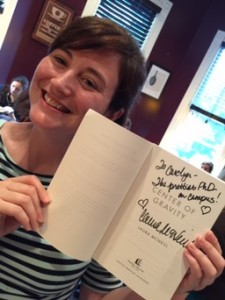 To Carolyn-
The prettiest PhD
on campus!
CENTER OF
GRAVITY
LAURA MCNEILL